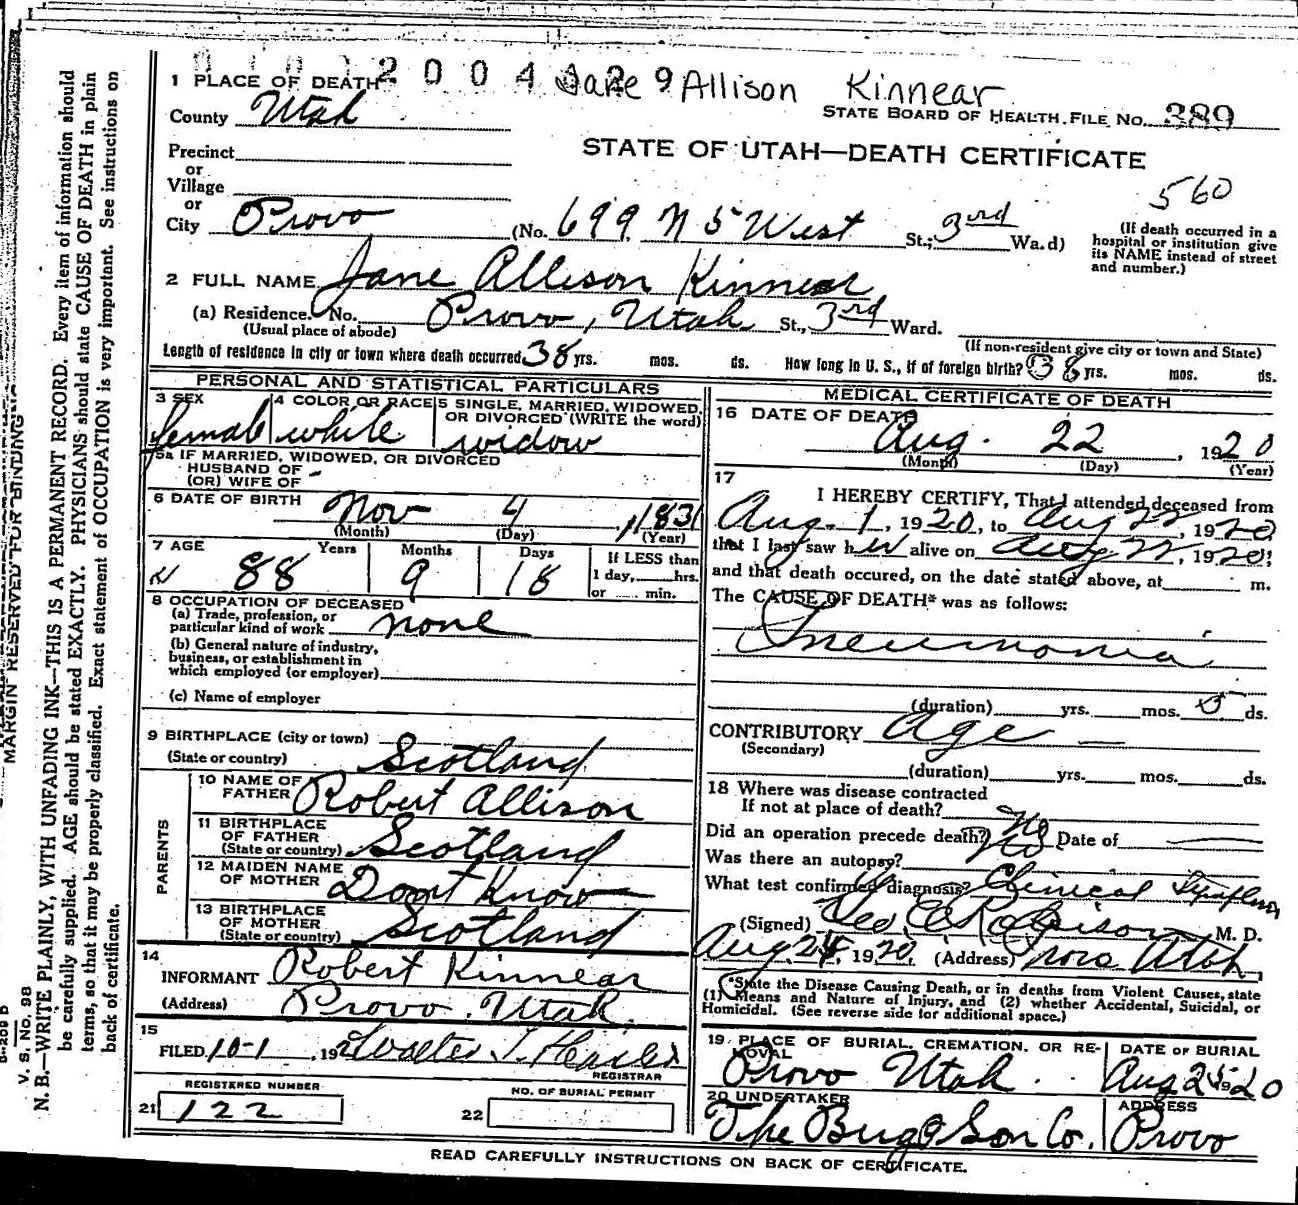 2004129 Jane Allison Kinnear
1 PLACE OF DEATH
STATE BOARD OF HEALTH. FILE No. 389
County Utah
STATE OF UTAH—DEATH CERTIFICATE
Precinct
or
Village
or
560
City Provo (No. 699 N 5 West St.; 3rd Wa.d)
(If death occurred in a hospital or institution give its NAME instead of street and number.)
2 FULL NAME Jane Allison Kinnear
(a) Residence. No. Provo, Utah St., 3rd Ward.
(Usual place of abode)
(If non-resident give city or town and State)
Length of residence in city or town where death occurred 38 yrs. mos. ds. How long in U. S., if of foreign birth? 38 yrs. mos. ds.
PERSONAL AND STATISTICAL PARTICULARS
3 SEX female
4 COLOR OR RACE white
5 SINGLE, MARRIED, WIDOWED, OR DIVORCED (WRITE the word) widow
5a IF MARRIED, WIDOWED, OR DIVORCED
HUSBAND OF
(OR) WIFE OF -
6 DATE OF BIRTH Nov 4, 1831
(Month) (Day) (Year)
7 AGE Years Months Days
88 9 18
If LESS than
1 day, hrs.
or min.
8 OCCUPATION OF DECEASED
(a) Trade, profession, or
particular kind of work none
(b) General nature of industry,
business, or establishment in
which employed (or employer)
(c) Name of employer
9 BIRTHPLACE (city or town)
(State or country) Scotland
PARENTS
10 NAME OF FATHER Robert Allison
11 BIRTHPLACE OF FATHER
(State or country) Scotland
12 MAIDEN NAME OF MOTHER Dont Know
13 BIRTHPLACE OF MOTHER
(State or country) Scotland
14
INFORMANT Robert Kinnear
(Address) Provo. Utah.
15
FILED 10-1, 192 Walter T.
REGISTRAR
REGISTERED NUMBER
21 122
NO. OF BURIAL PERMIT
22
MEDICAL CERTIFICATE OF DEATH
16 DATE OF DEATH
Aug. 22, 1920
(Month) (Day) (Year)
17
I HEREBY CERTIFY, That I attended deceased from
Aug. 1, 1920, to Aug 22, 1920
that I last saw her alive on Aug 22, 1920;
and that death occured, on the date stated above, at m.
The CAUSE OF DEATH* was as follows:
Pneumonia
(duration) yrs. mos. 5 ds.
CONTRIBUTORY Age —
(Secondary)
(duration) yrs. mos. ds.
18 Where was disease contracted
If not at place of death?
Did an operation precede death? No Date of —
Was there an autopsy? No
What test confirmed diagnosis? Clinical Symptoms
(Signed) Geo E Robison, M. D.
Aug. 24, 1920, (Address) Provo Utah,
*State the Disease Causing Death, or in deaths from Violent Causes, state
(1) Means and Nature of Injury, and (2) whether Accidental, Suicidal, or
Homicidal. (See reverse side for additional space.)
19. PLACE OF BURIAL, CREMATION, OR RE-
MOVAL
Provo Utah
DATE OF BURIAL
Aug 25 1920
20 UNDERTAKER
The Berg & Son Co.
ADDRESS
Provo
READ CAREFULLY INSTRUCTIONS ON BACK OF CERTIFICATE.
MARGIN RESERVED FOR BINDING
V. S. No. 98
N. B.—WRITE PLAINLY, WITH UNFADING INK—THIS IS A PERMANENT RECORD. Every item of information should
be carefully supplied. AGE should be stated EXACTLY. PHYSICIANS should state CAUSE OF DEATH in plain
terms, so that it may be properly classified. Exact statement of OCCUPATION is very important. See instructions on
back of certificate.